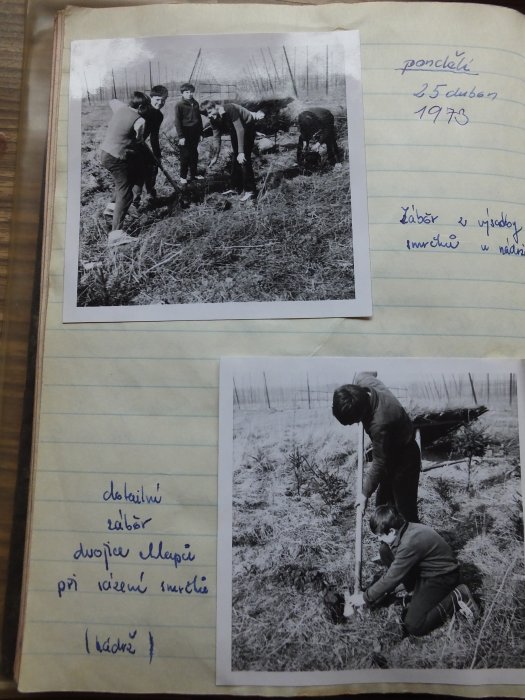 pondělí
25 duben
1973
Záběr z výsadby
smrčků u nádrž
detailní
záběr
dvojice chlapů
při sázení smrčků
(nádrž)